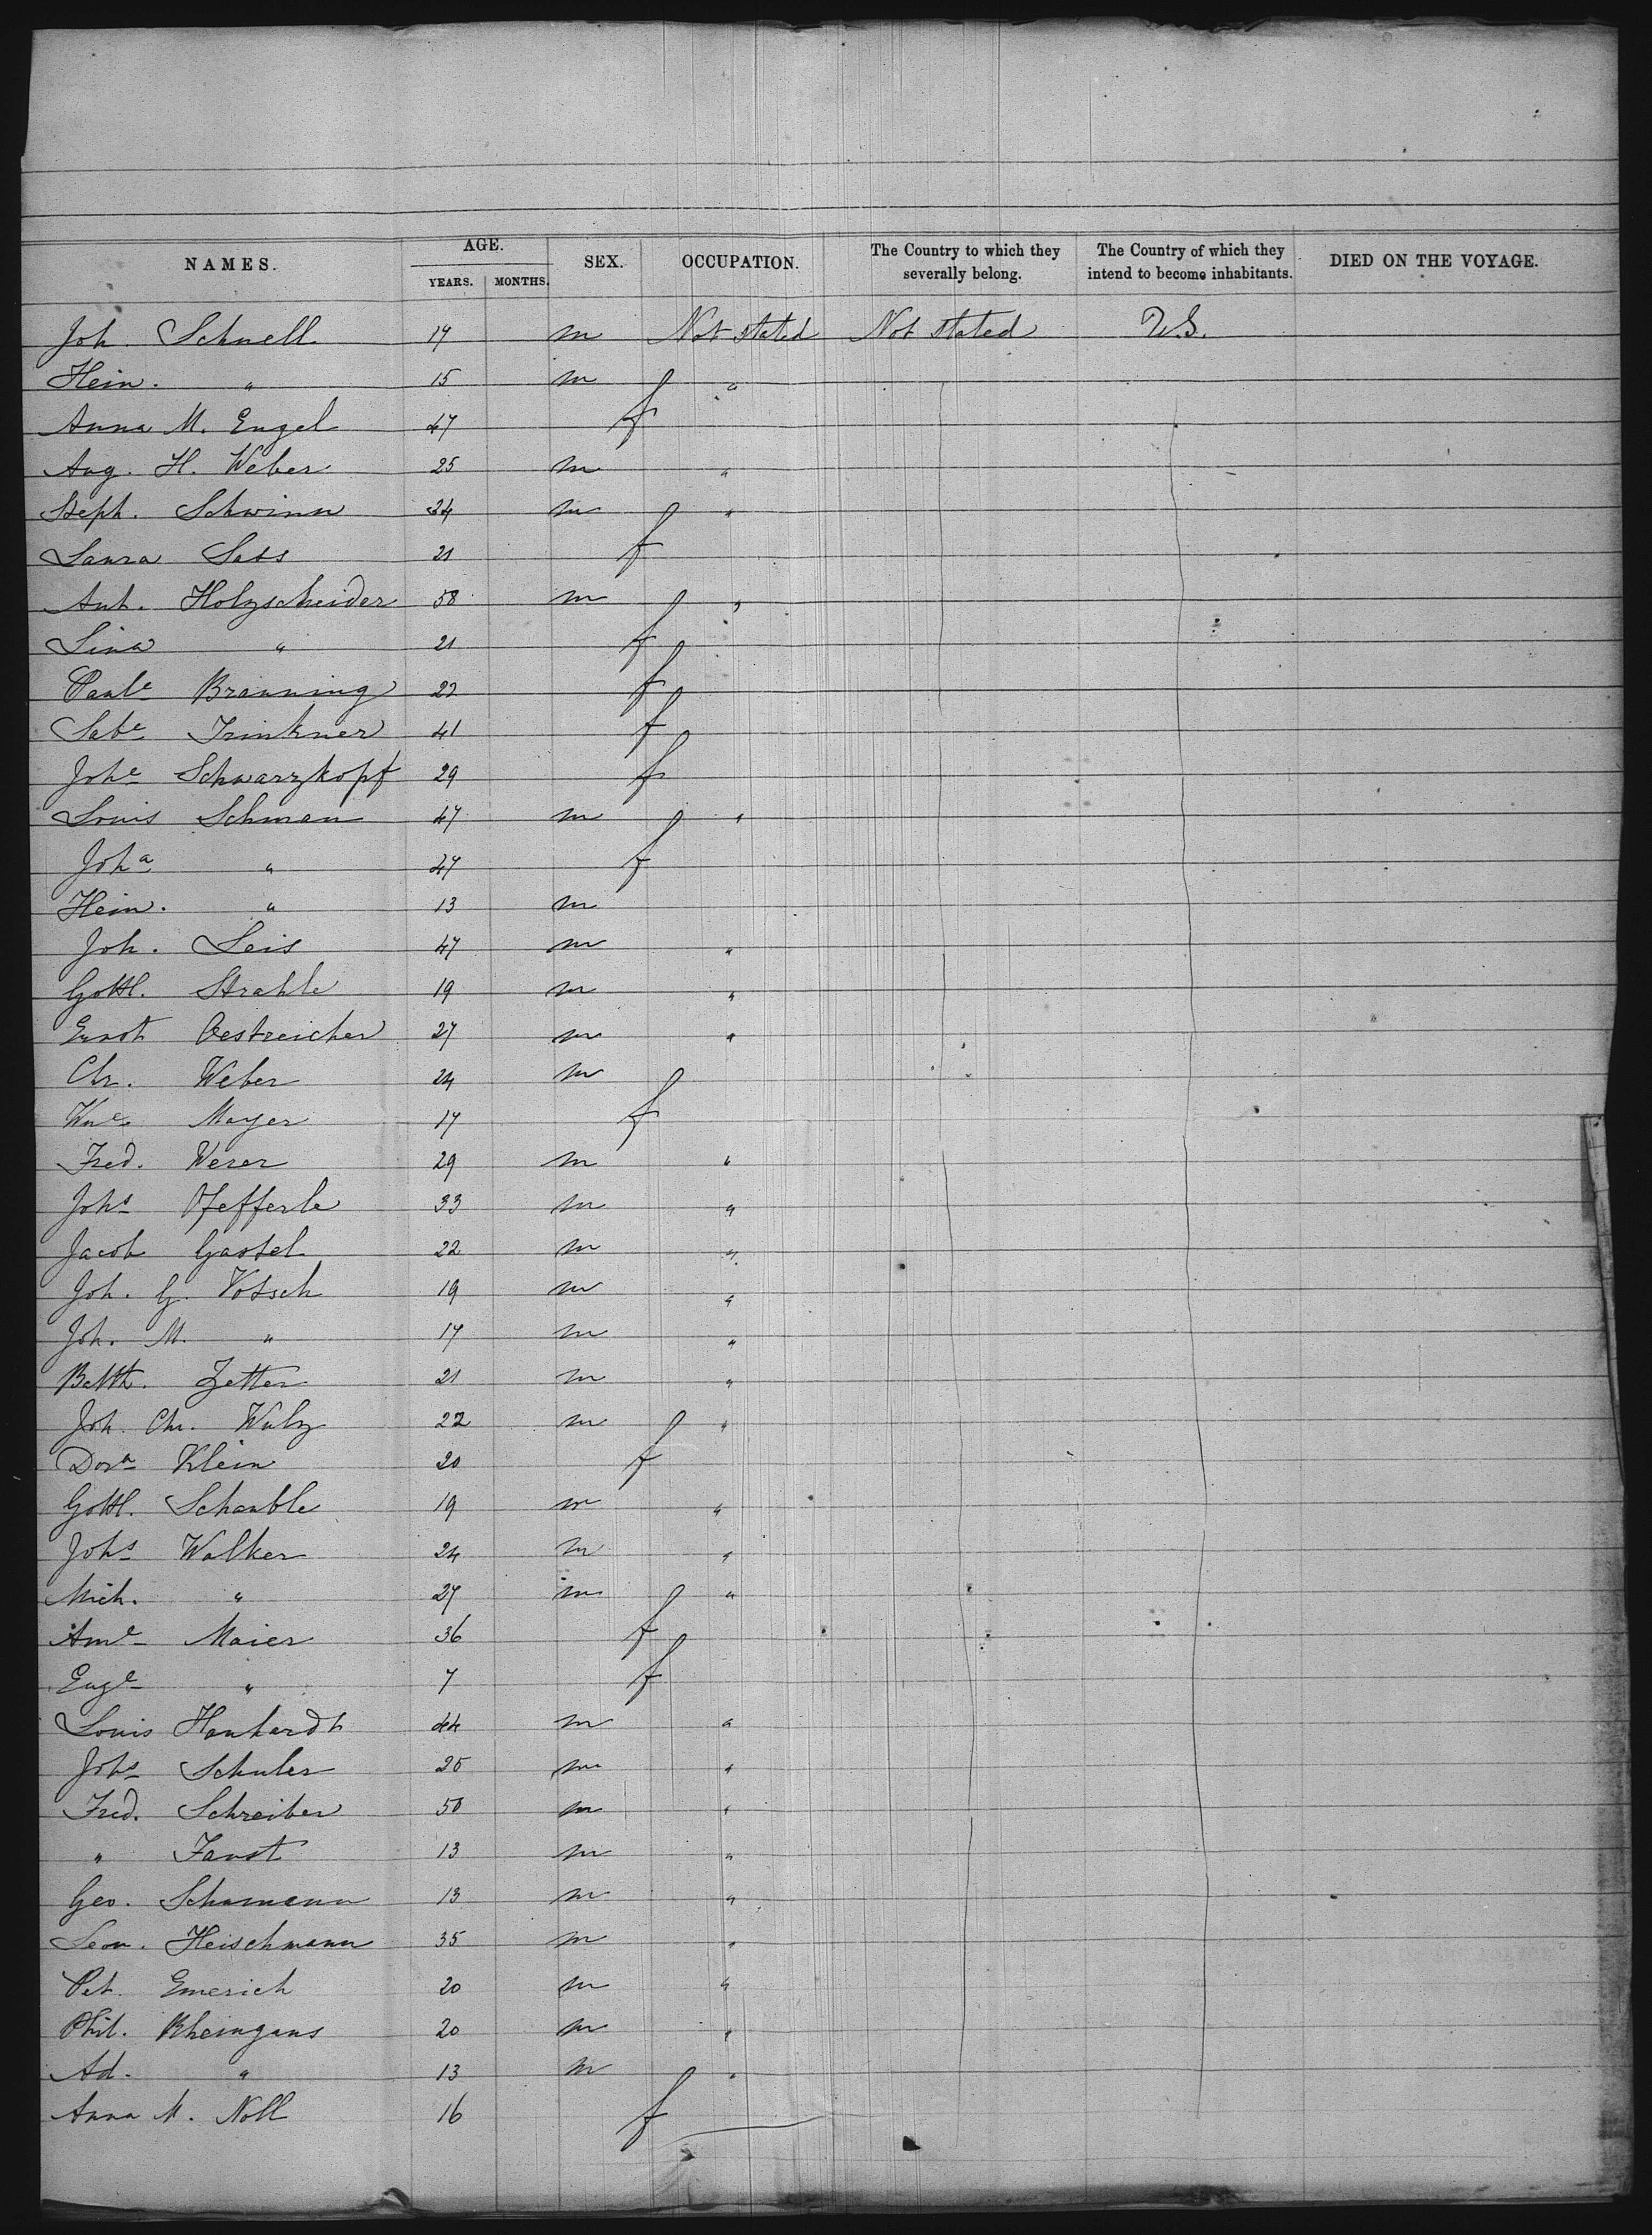 NAMES. AGE. YEARS. MONTHS. SEX. OCCUPATION. The Country to which they severally belong. The Country of which they intend to become inhabitants. DIED ON THE VOYAGE.
Joh. Schnell 17 m Not stated Not stated U.S.
Hein. " 15 m "
Anna M. Engel 47 f
Aug. H. Weber 25 m "
Steph. Schwinn 24 m "
Laura Sass 21 f
Ant. Holzscheider 58 m "
Lina " 21 f
Paule Branning 22 f
Sabe Trinkner 41 f
Johe Schwarzkopf 29 f
Louis Schman 47 m "
Joha " 27 f
Hein. " 13 m
Joh. Leis 47 m "
Gottl. Strahle 19 m "
Ernst Oestreicher 27 m "
Chr. Weber 24 m
Wne Mayer 17 f
Fred. Werer 29 m "
Johs Pfefferle 33 m "
Jacob Gastel 22 m "
Joh. G. Votsch 19 m "
Joh. M. " 17 m "
Balth. Zetter 21 m "
Joh. Chr. Walz 22 m "
Dora Klein 20 f
Gottl. Schauble 19 m "
Johs Walker 24 m "
Mich. " 27 m "
Ame Maier 36 f
Euge " 7 f
Louis Hanhardt 44 m "
Johs Schuler 25 m "
Fred. Schreiber 50 m "
" Faust 13 m "
Geo. Schamann 13 m "
Leon. Heischmann 35 m "
Pet. Emerich 20 m "
Phil. Rheingans 20 m "
Ad. " 13 m "
Anna M. Noll 16 f